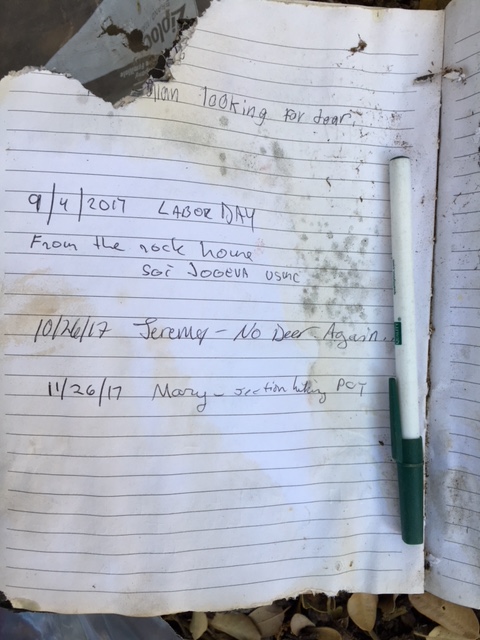 Ziploc
looking for dear
9/4/2017 LABOR DAY
From the rock house
USMC
10/26/17 Jeremy - No Deer Again
11/26/17 Mary - section hiking PCT